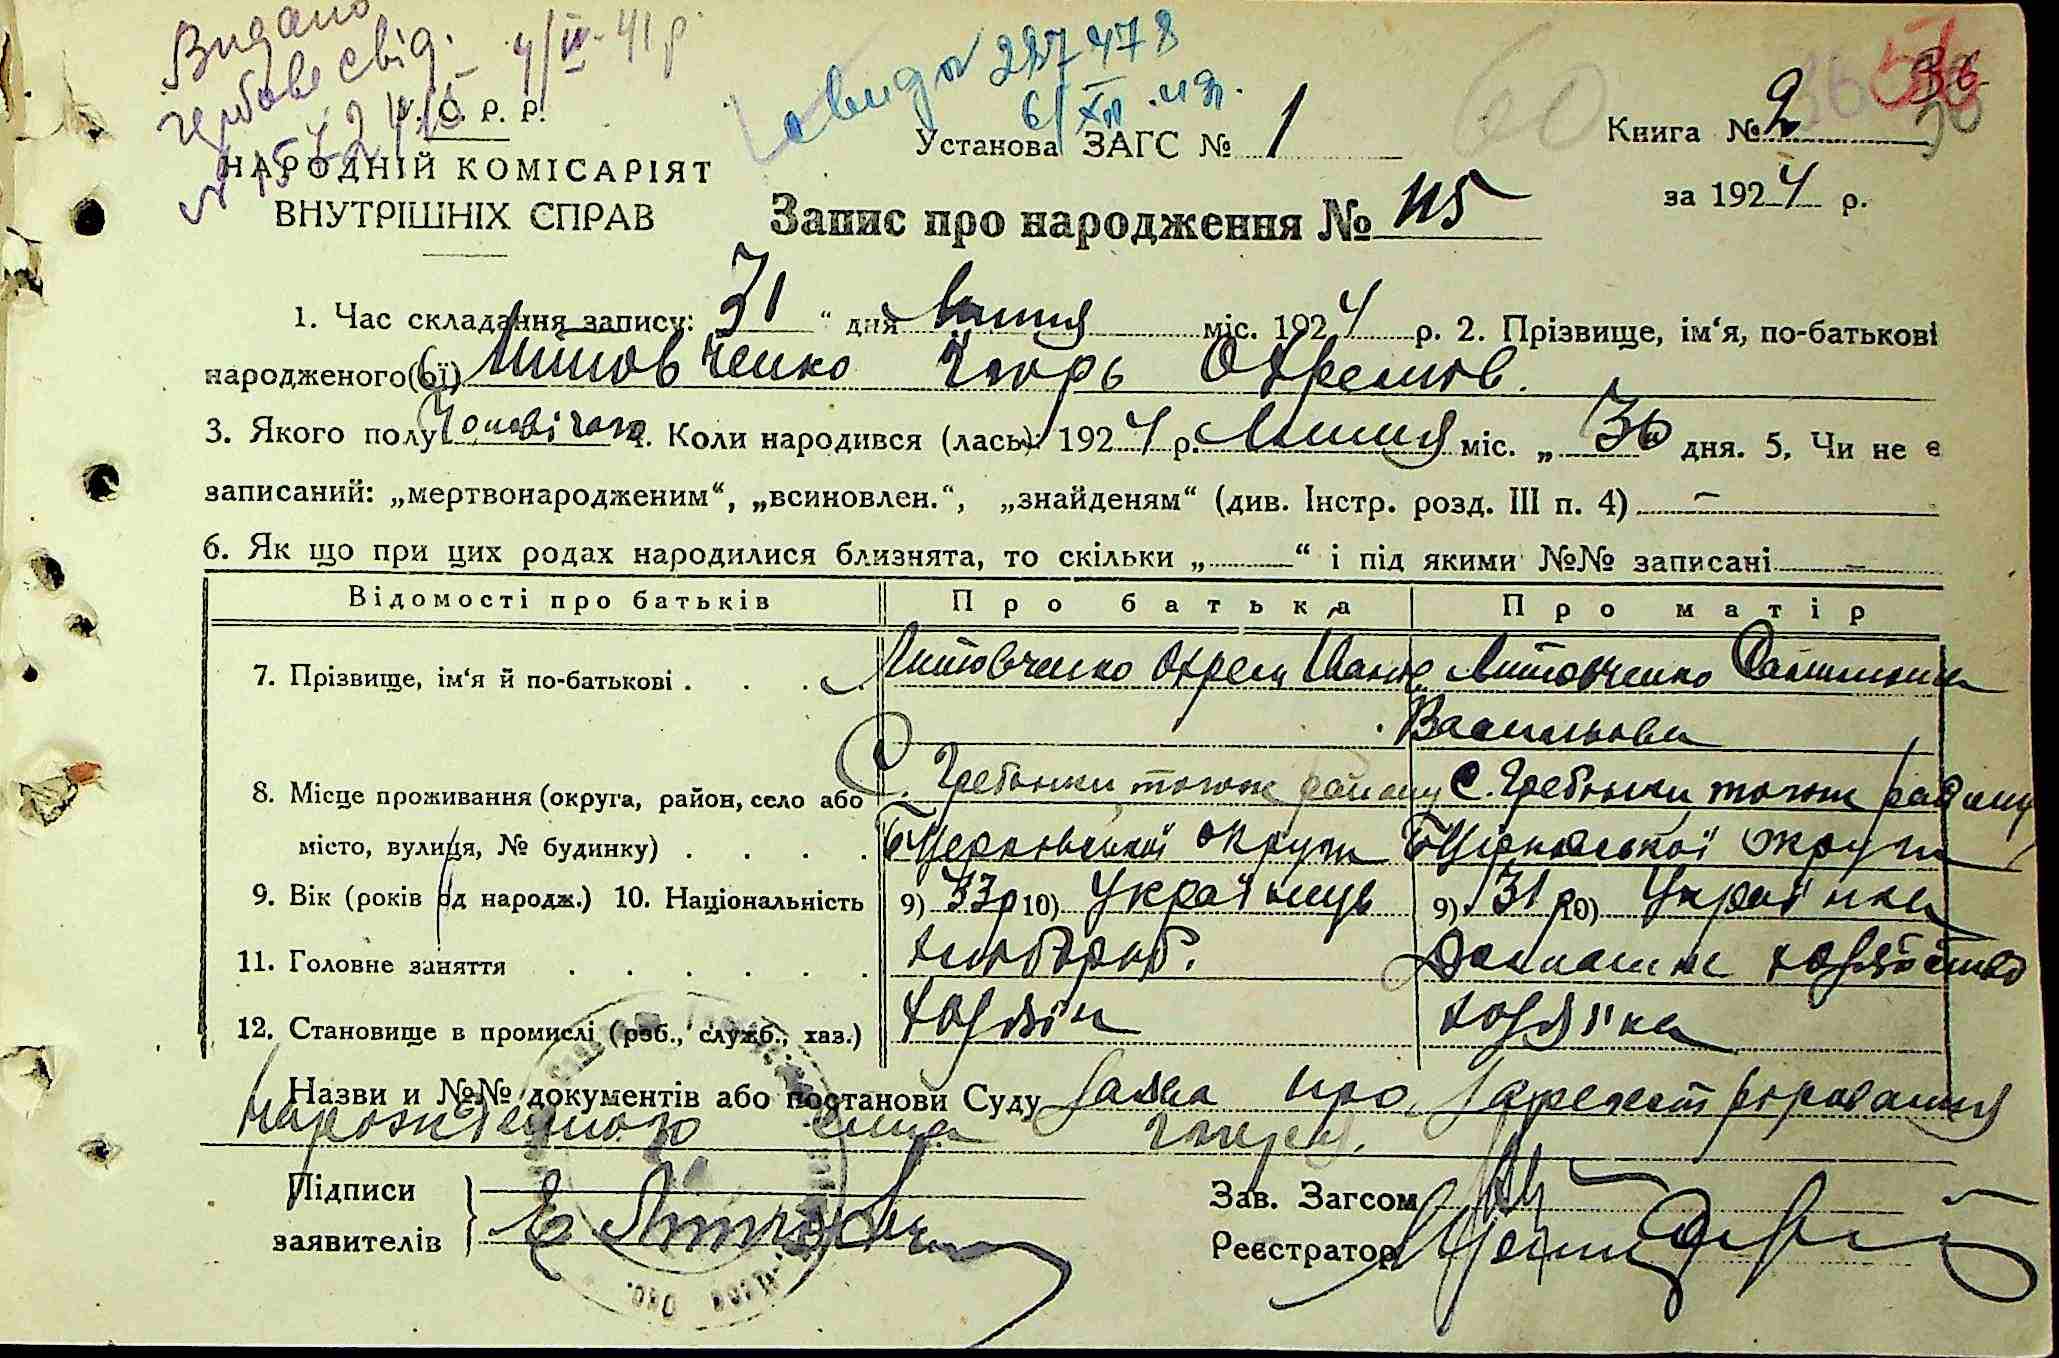 Видано
гербове свід.
4/IV-41 р
№ 287478
6/XII
36
У. С. Р. Р.
НАРОДНІЙ КОМІСАРІЯТ
ВНУТРІШНІХ СПРАВ
Установа ЗАГС № 1
60
Книга № 2
за 1924 р.
Запис про народження № 115
1. Час складання запису: 31 “ дня Липня міс. 1924 р. 2. Прізвище, ім‘я, по-батькові
народженого(ої) Литовченко Ігорь Охремов.
3. Якого полу Чоловічого 4. Коли народився (лась): 1924 р. Липня міс. „ 30 дня. 5. Чи не є
записаний: „мертвонародженим“, „всиновлен.“, „знайденям“ (див. Інстр. розд. III п. 4) —
6. Як що при цих родах народилися близнята, то скільки „ “ і під якими №№ записані —
Відомості про батьків Про батька Про матір
7. Прізвище, ім‘я й по-батькові . . . Литовченко Охрем Іванов Литовченко
Васильовна
8. Місце проживання (округа, район, село або С. Гребінки того ж району С. Гребінки того ж району
місто, вулиця, № будинку) . . . . БЦерковської округи БЦерковської округи
9. Вік (років од народж.) 10. Національність 9) 33 р 10) Українець 9) 31 р 10) Українка
11. Головне заняття . . . . . . хлібороб. Домашнє хозяйство
12. Становище в промислі (роб., служб., хаз.) хозяїн хозяйка
Назви и №№ документів або постанови Суду Заява про зареєстрировання
нарожденного сина Ігоря.
Підписи
заявителів
Зав. Загсом
Реєстратор